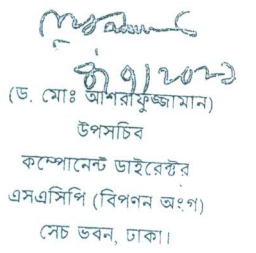 (ড. মোঃ আশরাফুজ্জামান)
উপসচিব
কম্পোনেন্ট ডাইরেক্টর
এসএসিপি (বিপনন অংগ)
সেচ ভবন, ঢাকা।